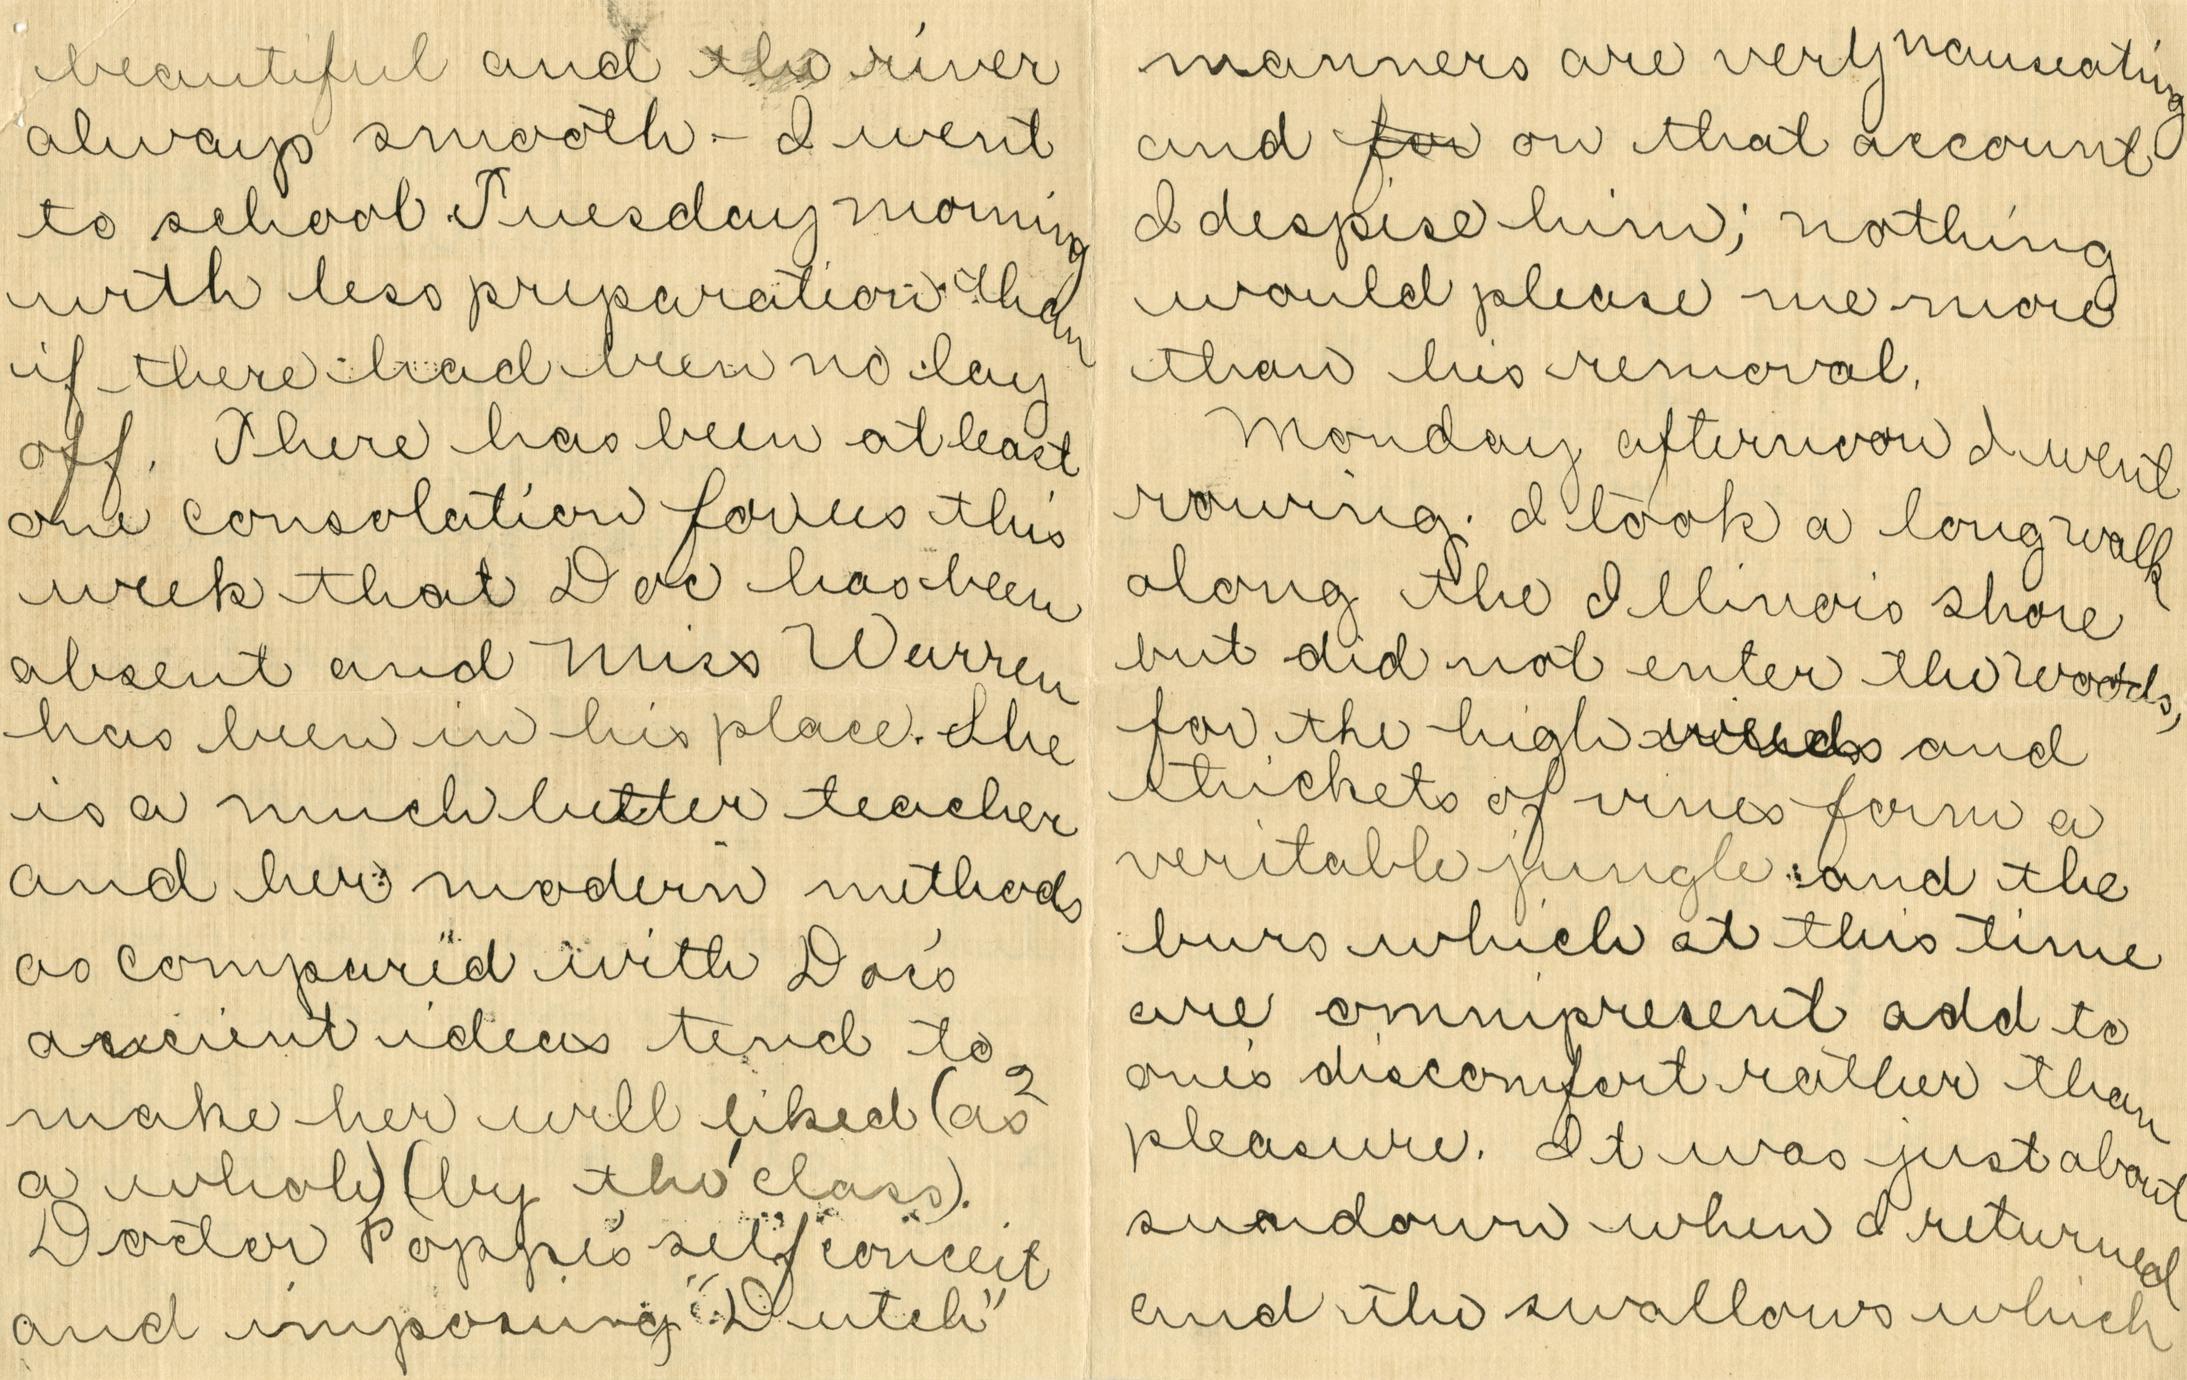 beautiful and the river
always smooth - I went
to school Tuesday morning
with less preparation than
if there had been no lay
off. There has been at least
one consolation for us this
week that Doc has been
absent and Miss Warren
has been in his place. She
is a much better teacher
and her modern methods
as compared with Doc's
ancient ideas tend to
make her well liked (as 2
a whole) (by the class).
Doctor Poppe's self conceit
and imposing "Dutch"
manners are very nauseating
and for on that account
I despise him; nothing
would please me more
than his removal.
Monday afternoon I went
rowing. I took a long walk
along the Illinois shore
but did not enter the woods,
for the high weeds and
thickets of vines form a
veritable jungle and the
burs which at this time
are omnipresent add to
one's discomfort rather than
pleasure. It was just about
sundown when I returned
and the swallows which